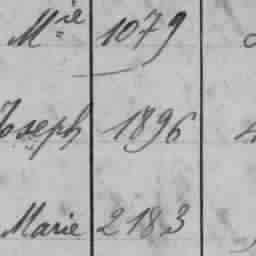 Mie 1079
Joseph 1896
Marie 2183